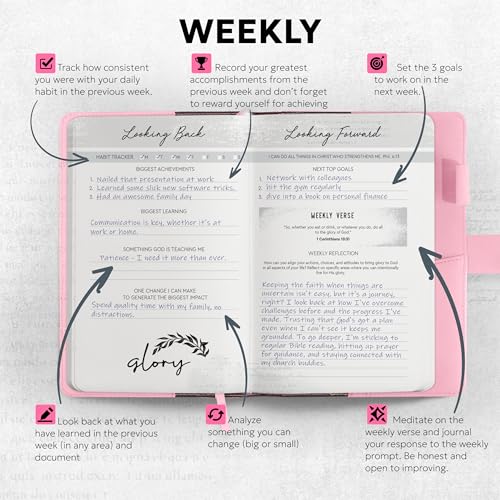 WEEKLY
Track how consistent
you were with your daily
habit in the previous week.
Record your greatest
accomplishments from the
previous week and don't forget
to reward yourself for achieving
Set the 3 goals
to work on in the
next week.
Looking Back
HABIT TRACKER
BIGGEST ACHIEVEMENTS
1. Nailed that presentation at work
2. Learned some slick new software tricks.
3. Had an awesome family day
BIGGEST LEARNING
Communication is key, whether it's
at work or home.
SOMETHING GOD IS TEACHING ME
Patience - I need it more than ever.
ONE CHANGE I CAN MAKE
TO GENERATE THE BIGGEST IMPACT
Spend quality time with my family, no
distractions.
glory
Looking Forward
I CAN DO ALL THINGS IN CHRIST WHO STRENGTHENS ME. PHIL 4:13
NEXT TOP GOALS
1. Network with colleagues
2. hit the gym regularly
3. dive into a book on personal finance
WEEKLY VERSE
"So, whether you eat or drink, or whatever you do, do all
to the glory of God."
1 Corinthians 10:31
WEEKLY REFLECTION
How can you align your actions, choices, and attitudes to bring glory to God
in all aspects of your life? Reflect on specific areas where you can intentionally
live for His glory.
Keeping the faith when things are
uncertain isn't easy, but it's a journey,
right? I look back at how I've overcome
challenges before and the progress I've
made. Trusting that God's got a plan
even when I can't see it keeps me
grounded. To go deeper, I'm sticking to
regular Bible reading, hitting up prayer
for guidance, and staying connected with
my church buddies.
Look back at what you
have learned in the previous
week (in any area) and
document
Analyze
something you can
change (big or small)
Meditate on the
weekly verse and journal
your response to the weekly
prompt. Be honest and
open to improving.